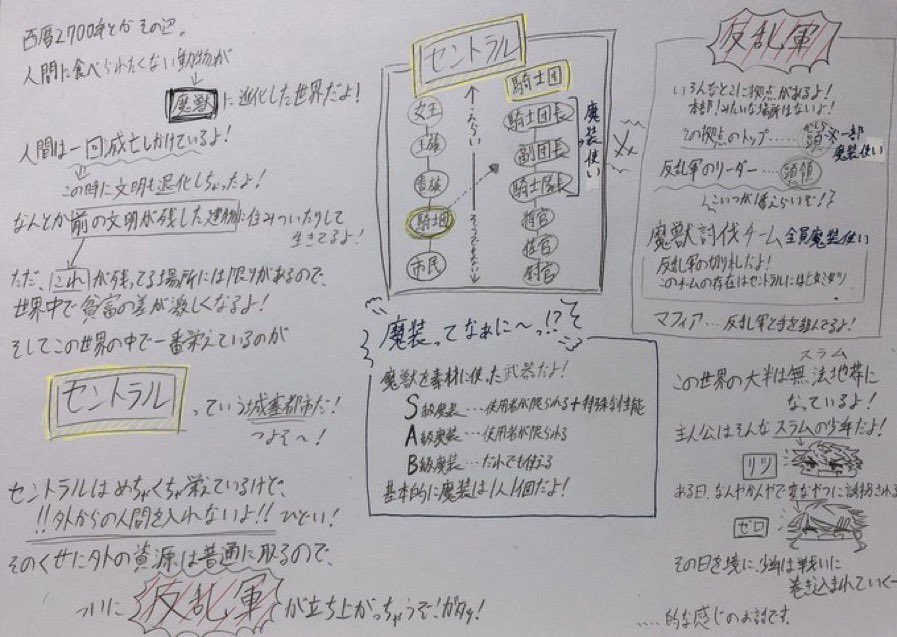 西暦2700年とかその辺。
人間に食べられたくない動物が
魔獣に進化した世界だよ!
人間は一回滅亡しかけているよ!
この時に文明も退化しちゃったよ!
なんとか前の文明が残した建物に住みついたりして
生きてるよ!
ただ、これが残ってる場所には限りがあるので、
世界中で貧富の差が激しくなるよ!
そしてこの世界の中で一番栄えているのが
セントラル
っていう城塞都市だ!
つよそ〜!
セントラルはめちゃくちゃ栄えているけど、
!!外からの人間を入れないよ!! ひどい!
そのくせに外の資源は普通に取るので、
ついに反乱軍が立ち上がっちゃうぞ!ガタッ!
セントラル
女王
王族
貴族
騎士団
市民
えらい
そうでもない
騎士団
騎士団長
副団長
騎士隊長
佐官
尉官
魔装使い
魔装ってなぁに〜っ!?
魔獣を素材に使った武器だよ!
S級魔装…使用者が限られる+特殊な性能
A級魔装…使用者が限られる
B級魔装…だれでも使える
基本的に魔装は1人1個だよ!
反乱軍
いろんなとこに拠点があるよ!
本部!みたいな場所はないよ!
この拠点のトップ……頭 ※一部
かしら
魔装使い
反乱軍のリーダー…頭領
こいつが1番えらいぞ!?
魔獣討伐チーム 全員魔装使い
反乱軍の切り札だよ!
このチームの存在はセントラルには
マフィア…反乱軍と手を組んでるよ!
スラム
この世界の大半は無法地帯に
なっているよ!
主人公はそんなスラムの少年だよ!
リツ
ある日、なんやかんやで変なやつに誘拐される
ゼロ
その日を境に、少年は戦いに
巻き込まれていく…
……的な感じのお話です。